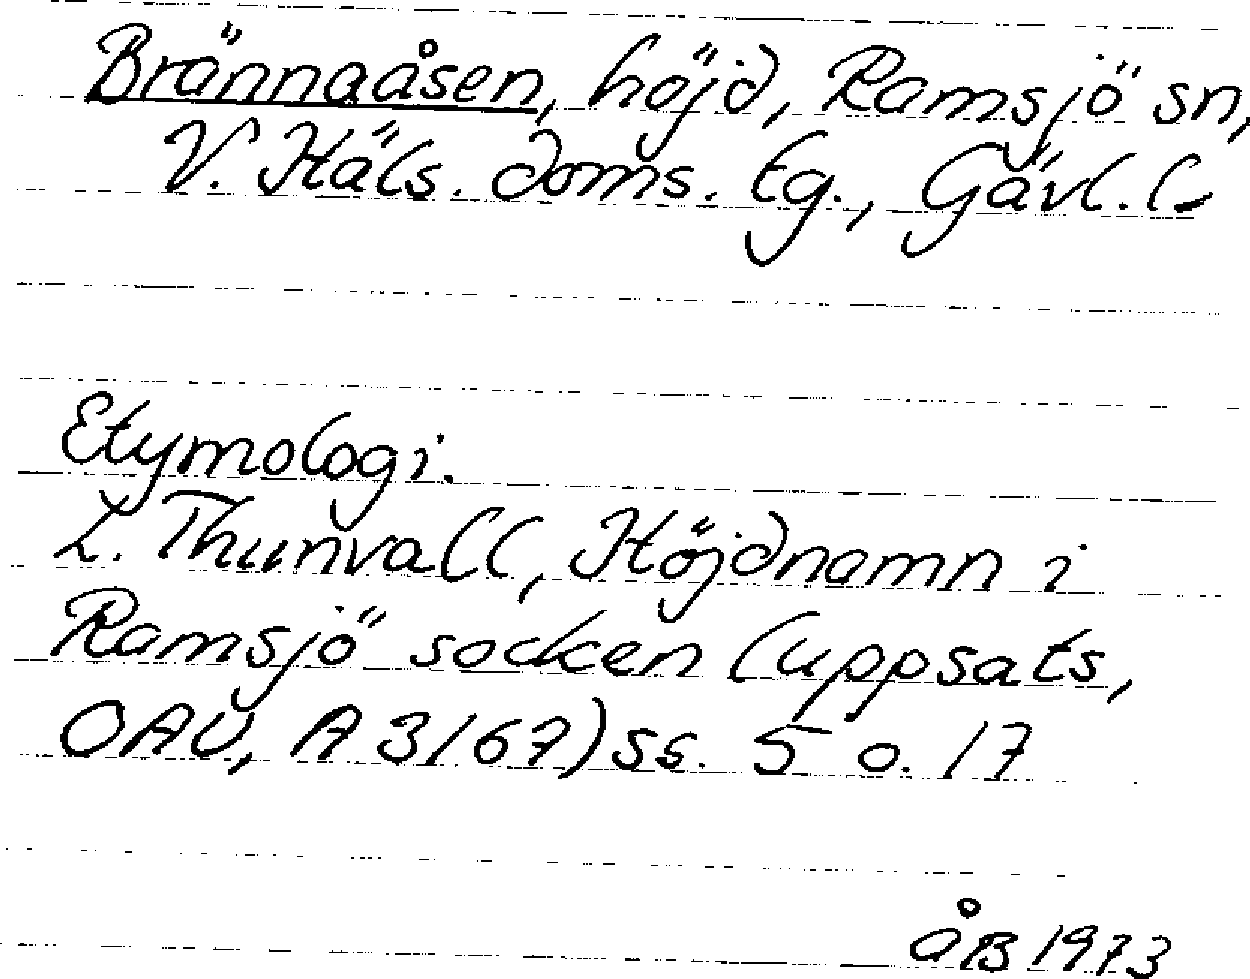 Brännaåsen, höjd, Ramsjö sn,
V. Häls. doms. tg., Gävl. l.
Etymologi.
L. Thunvall, Höjdnamn i
Ramsjö socken (uppsats,
OAU, A 3167) ss. 5 o. 17
ÅB 1973